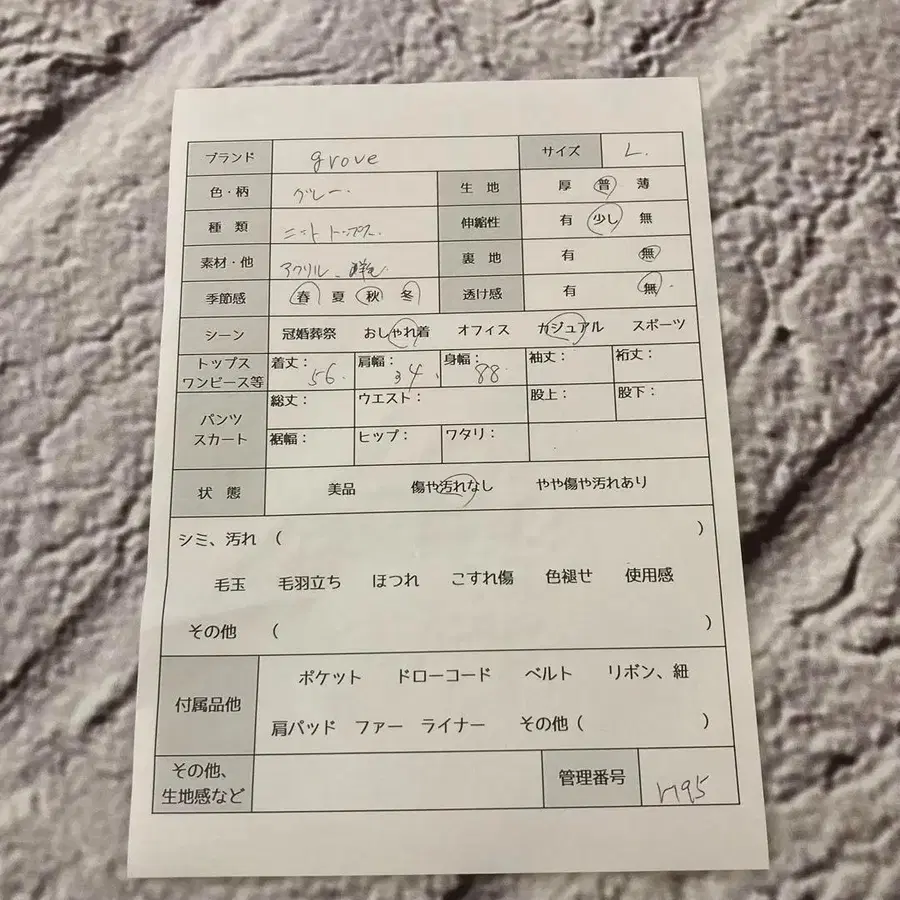 ブランド grove サイズ L.
色・柄 グレー. 生 地 厚 普 薄
種 類 ニット トップス. 伸縮性 有 少し 無
素材・他 アクリル、 裏 地 有 無
季節感 春 夏 秋 冬 透け感 有 無
シーン 冠婚葬祭 おしゃれ着 オフィス カジュアル スポーツ
トップス ワンピース等 着丈: 56. 肩幅: 34. 身幅: 88. 袖丈: 裄丈:
パンツ スカート 総丈: ウエスト: 股上: 股下:
裾幅: ヒップ: ワタリ:
状 態 美品 傷や汚れなし やや傷や汚れあり
シミ、汚れ ( )
毛玉 毛羽立ち ほつれ こすれ傷 色褪せ 使用感
その他 ( )
付属品他 ポケット ドローコード ベルト リボン、紐
肩パッド ファー ライナー その他 ( )
その他、 生地感など 管理番号